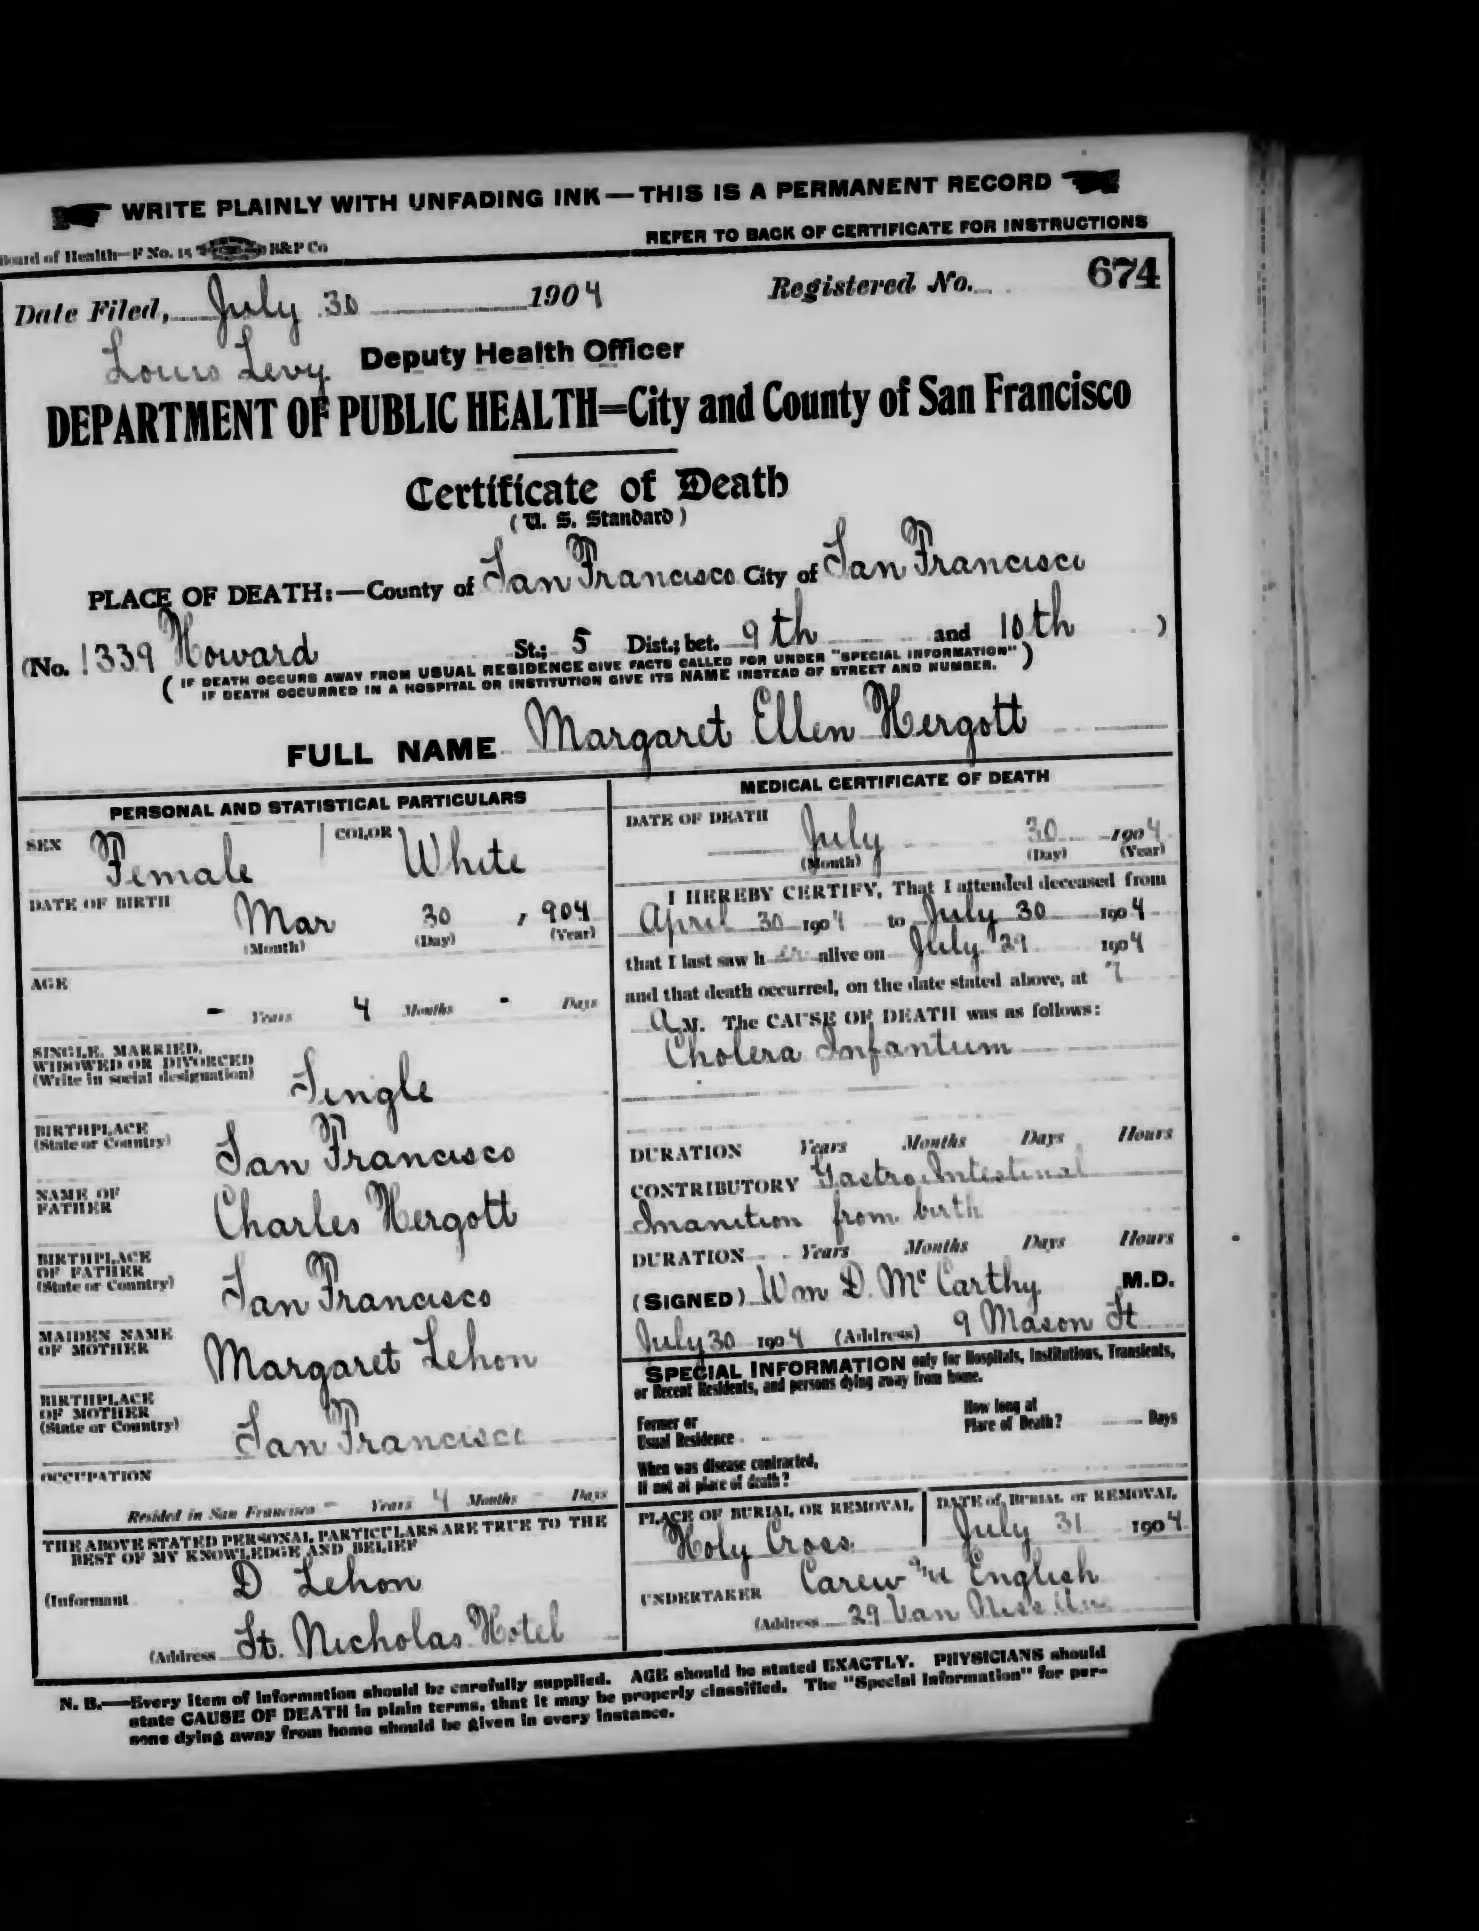 WRITE PLAINLY WITH UNFADING INK — THIS IS A PERMANENT RECORD
Board of Health—F No. 15 B&P Co
REFER TO BACK OF CERTIFICATE FOR INSTRUCTIONS
Date Filed, July 30 1904 Registered No. 674
Louis Levy Deputy Health Officer
DEPARTMENT OF PUBLIC HEALTH=City and County of San Francisco
Certificate of Death
(U. S. Standard)
PLACE OF DEATH:—County of San Francisco City of San Francisco
(No. 1339 Howard St.; 5 Dist.; bet. 9th and 10th )
( IF DEATH OCCURS AWAY FROM USUAL RESIDENCE GIVE FACTS CALLED FOR UNDER "SPECIAL INFORMATION" )
IF DEATH OCCURRED IN A HOSPITAL OR INSTITUTION GIVE ITS NAME INSTEAD OF STREET AND NUMBER.
FULL NAME Margaret Ellen Hergott
PERSONAL AND STATISTICAL PARTICULARS
SEX Female COLOR White
DATE OF BIRTH Mar 30 , 904
(Month) (Day) (Year)
AGE
- Years 4 Months - Days
SINGLE, MARRIED,
WIDOWED OR DIVORCED
(Write in social designation) Single
BIRTHPLACE
(State or Country) San Francisco
NAME OF
FATHER Charles Hergott
BIRTHPLACE
OF FATHER
(State or Country) San Francisco
MAIDEN NAME
OF MOTHER Margaret Lehon
BIRTHPLACE
OF MOTHER
(State or Country) San Francisco
OCCUPATION
Resided in San Francisco - Years 4 Months - Days
THE ABOVE STATED PERSONAL PARTICULARS ARE TRUE TO THE
BEST OF MY KNOWLEDGE AND BELIEF
(Informant D Lehon
(Address St. Nicholas Hotel
MEDICAL CERTIFICATE OF DEATH
DATE OF DEATH July 30 1904
(Month) (Day) (Year)
I HEREBY CERTIFY, That I attended deceased from
April 30 1904 to July 30 1904
that I last saw h er alive on July 29 1904
and that death occurred, on the date stated above, at 7
A M. The CAUSE OF DEATH was as follows:
Cholera Infantum
DURATION Years Months Days Hours
CONTRIBUTORY Gastro Intestinal
Inanition from birth
DURATION Years Months Days Hours
(SIGNED) Wm D. McCarthy M.D.
July 30 1904 (Address) 9 Mason St
SPECIAL INFORMATION only for Hospitals, Institutions, Transients,
or Recent Residents, and persons dying away from home.
Former or
Usual Residence
How long at
Place of Death? Days
When was disease contracted,
If not at place of death?
PLACE OF BURIAL OR REMOVAL
Holy Cross
DATE of BURIAL or REMOVAL
July 31 1904
UNDERTAKER Carew & English
(Address 29 Van Ness Av
N. B.—Every item of information should be carefully supplied. AGE should be stated EXACTLY. PHYSICIANS should
state CAUSE OF DEATH in plain terms, that it may be properly classified. The "Special Information" for per-
sons dying away from home should be given in every instance.